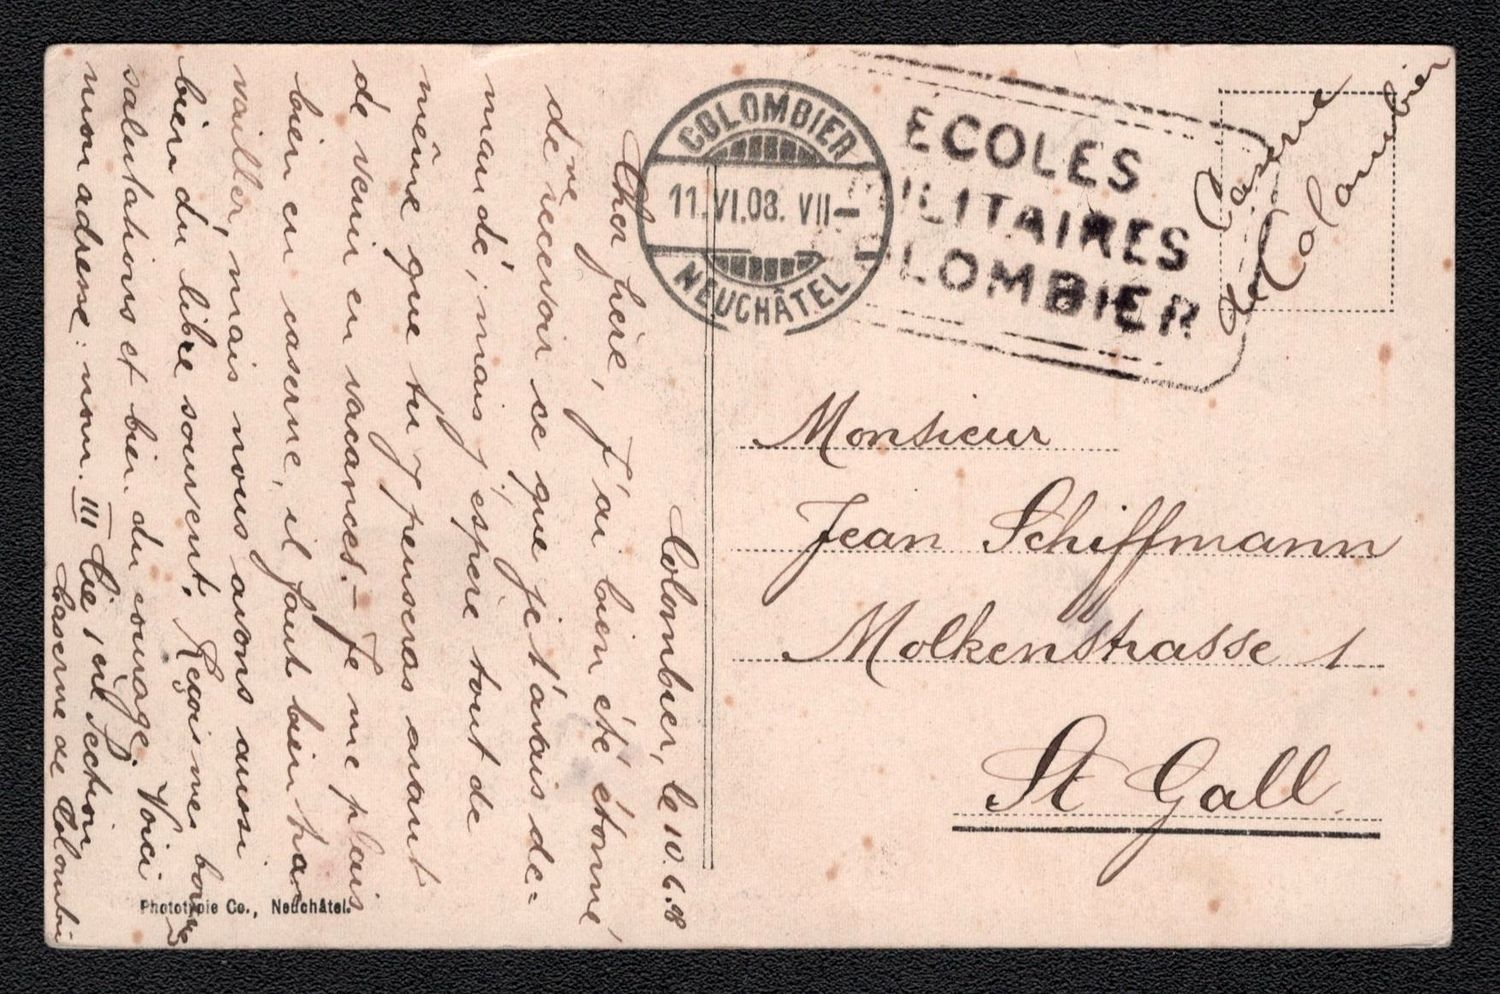 COLOMBIER
11.VI.08. VII-
NEUCHÂTEL
ÉCOLES
MILITAIRES
COLOMBIER
Caserne
de Colombier
Monsieur
Jean Schiffmann
Molkenstrasse 1
St Gall
Colombier, le 10.6.08
Cher frère, J'ai bien été étonné
de recevoir ce que je t'avais de=
mandé, mais j'espère tout de
même que tu y penseras avant
de venir en vacances.- Je me plais
bien en caserne, il faut bien tra
vailler, mais nous avons aussi
bien du libre souvent. Reçois mes bonnes
salutations et bien du courage. Voici
mon adresse: nom. III Cie 1 ère Section
Caserne de Colombier
Phototypie Co., Neuchâtel.